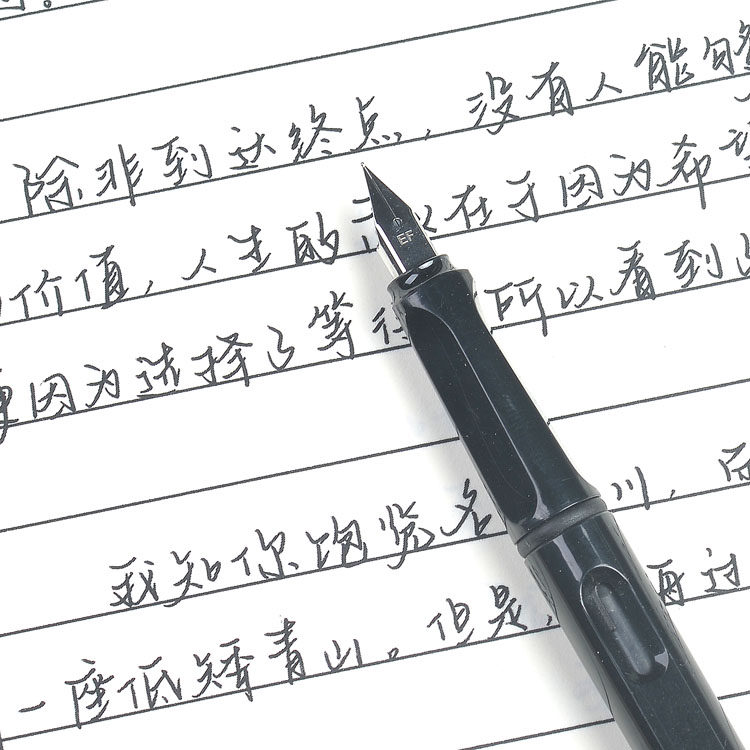 除非到达终点，没有人能够
价值，人生的 在于因为希望
因为选择了等待 所以看到
我知你饱览名 川，
一座低矮青山。但是， 再过
EF